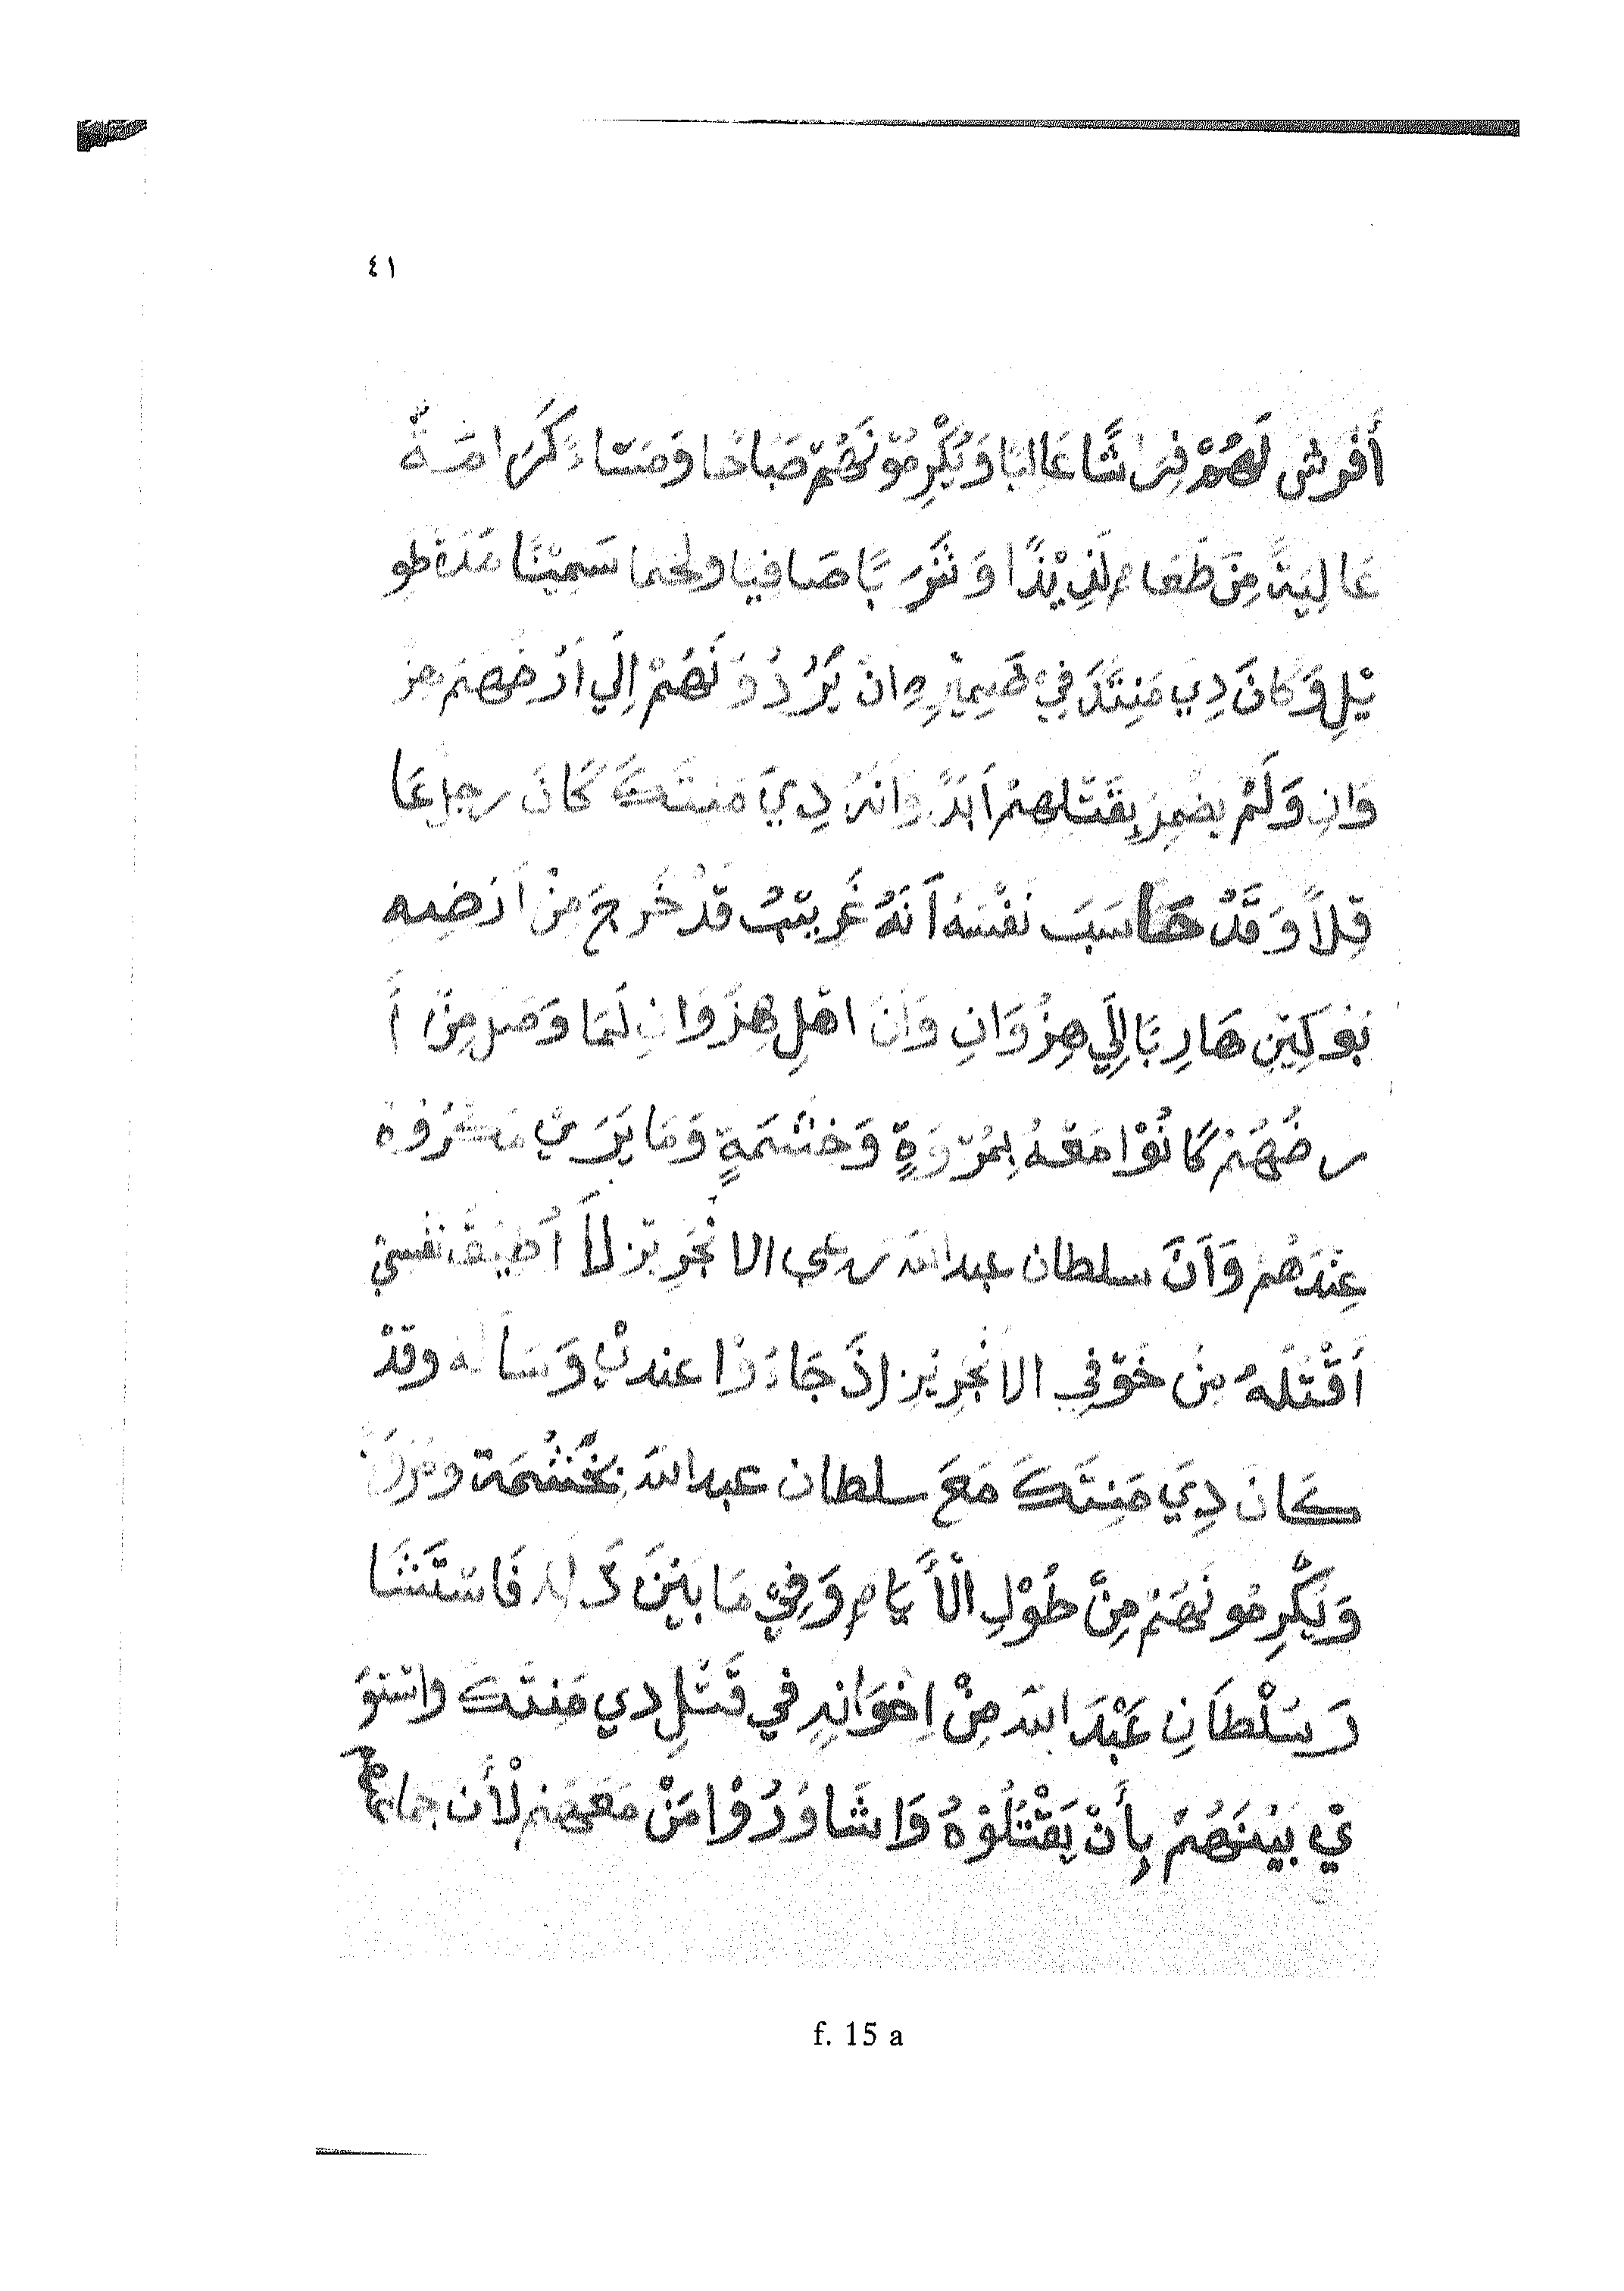 ٤١
أَفْرِشْ لَهُمْ فِرَاشًا عَالِيًا وَيُكْرِمُوْنَهُمْ صَبَاحًا وَمَسَاءً كَرَامَةً
عَالِيَةً مِنْ طَعَامٍ لَذِيْذًا وَشَرَبًا صَافيا ولحما سَمِيْنًا مُدَةْ طو
يْلِ وَكَانَ دِي مَنِتَكَ فِيْ ضَمِيْرِهِ انْ يَرُدُوْنَهُمْ اِلَي اَرْضِهَمْ هِزْ
وَانِ وَلَمْ يضْمِرْ بِقَتْلِهمْ اَبَدً وَانَهُ دِيَ مَنِتَكَ كَانَ رجل عَا
قِلاً وَقَدْ حَاسَبَ نَفْسَهُ اَنَهُ غَرِيْبُ قَدْ خَرَجَ مِنْ اَرْضِهِ
بَوْكِيْنِ هَارِبًا اِلَي هِزْوَانِ وَاَنَ اهْلِ هِزْوَانِ لَمَا وَصَلَ مِنْ اَ
رضُهُمْ كَانُوْا مَعَهُ بِمُرُوَةٍ وَحَشْمَةٍ وَمَا يَرَيْ مَكْرُوْهْ
عِنْدَهُمْ وَاَنَّ سلطان عبدالله رعي الانْجَرِيْز لاَ اُطِيْقُ نَفْسِيْ
اَقْتُلَهُ مِنْ خَوْفِي الانْجَرِيْز اِذَ جَاءُوْا عندي وَسَأله وقَدْ
كَانَ دِيَ مَنِتَكَ مَعَ سلطان عبدالله بِحَشْمَة
وَيُكْرِمُونَهَمْ مِنَّ طُوْلِ الْأَيَامِ وَفِيْ مَا بَيْنَ ذَلِكَ فَاسْتَشَا
رَ سُلْطَانِ عَبْدَ الله مِنْ اِخْوَانِهِ فِي قَتْلِ دِي مَنِتَكَ واسْتَوَ
يْ بَيْنَهُمْ بِأَنْ يَقْتُلُوْهُ وَاشَاوَرُوْا مَنْ مَعَهَمْ لأَن
f. 15 a